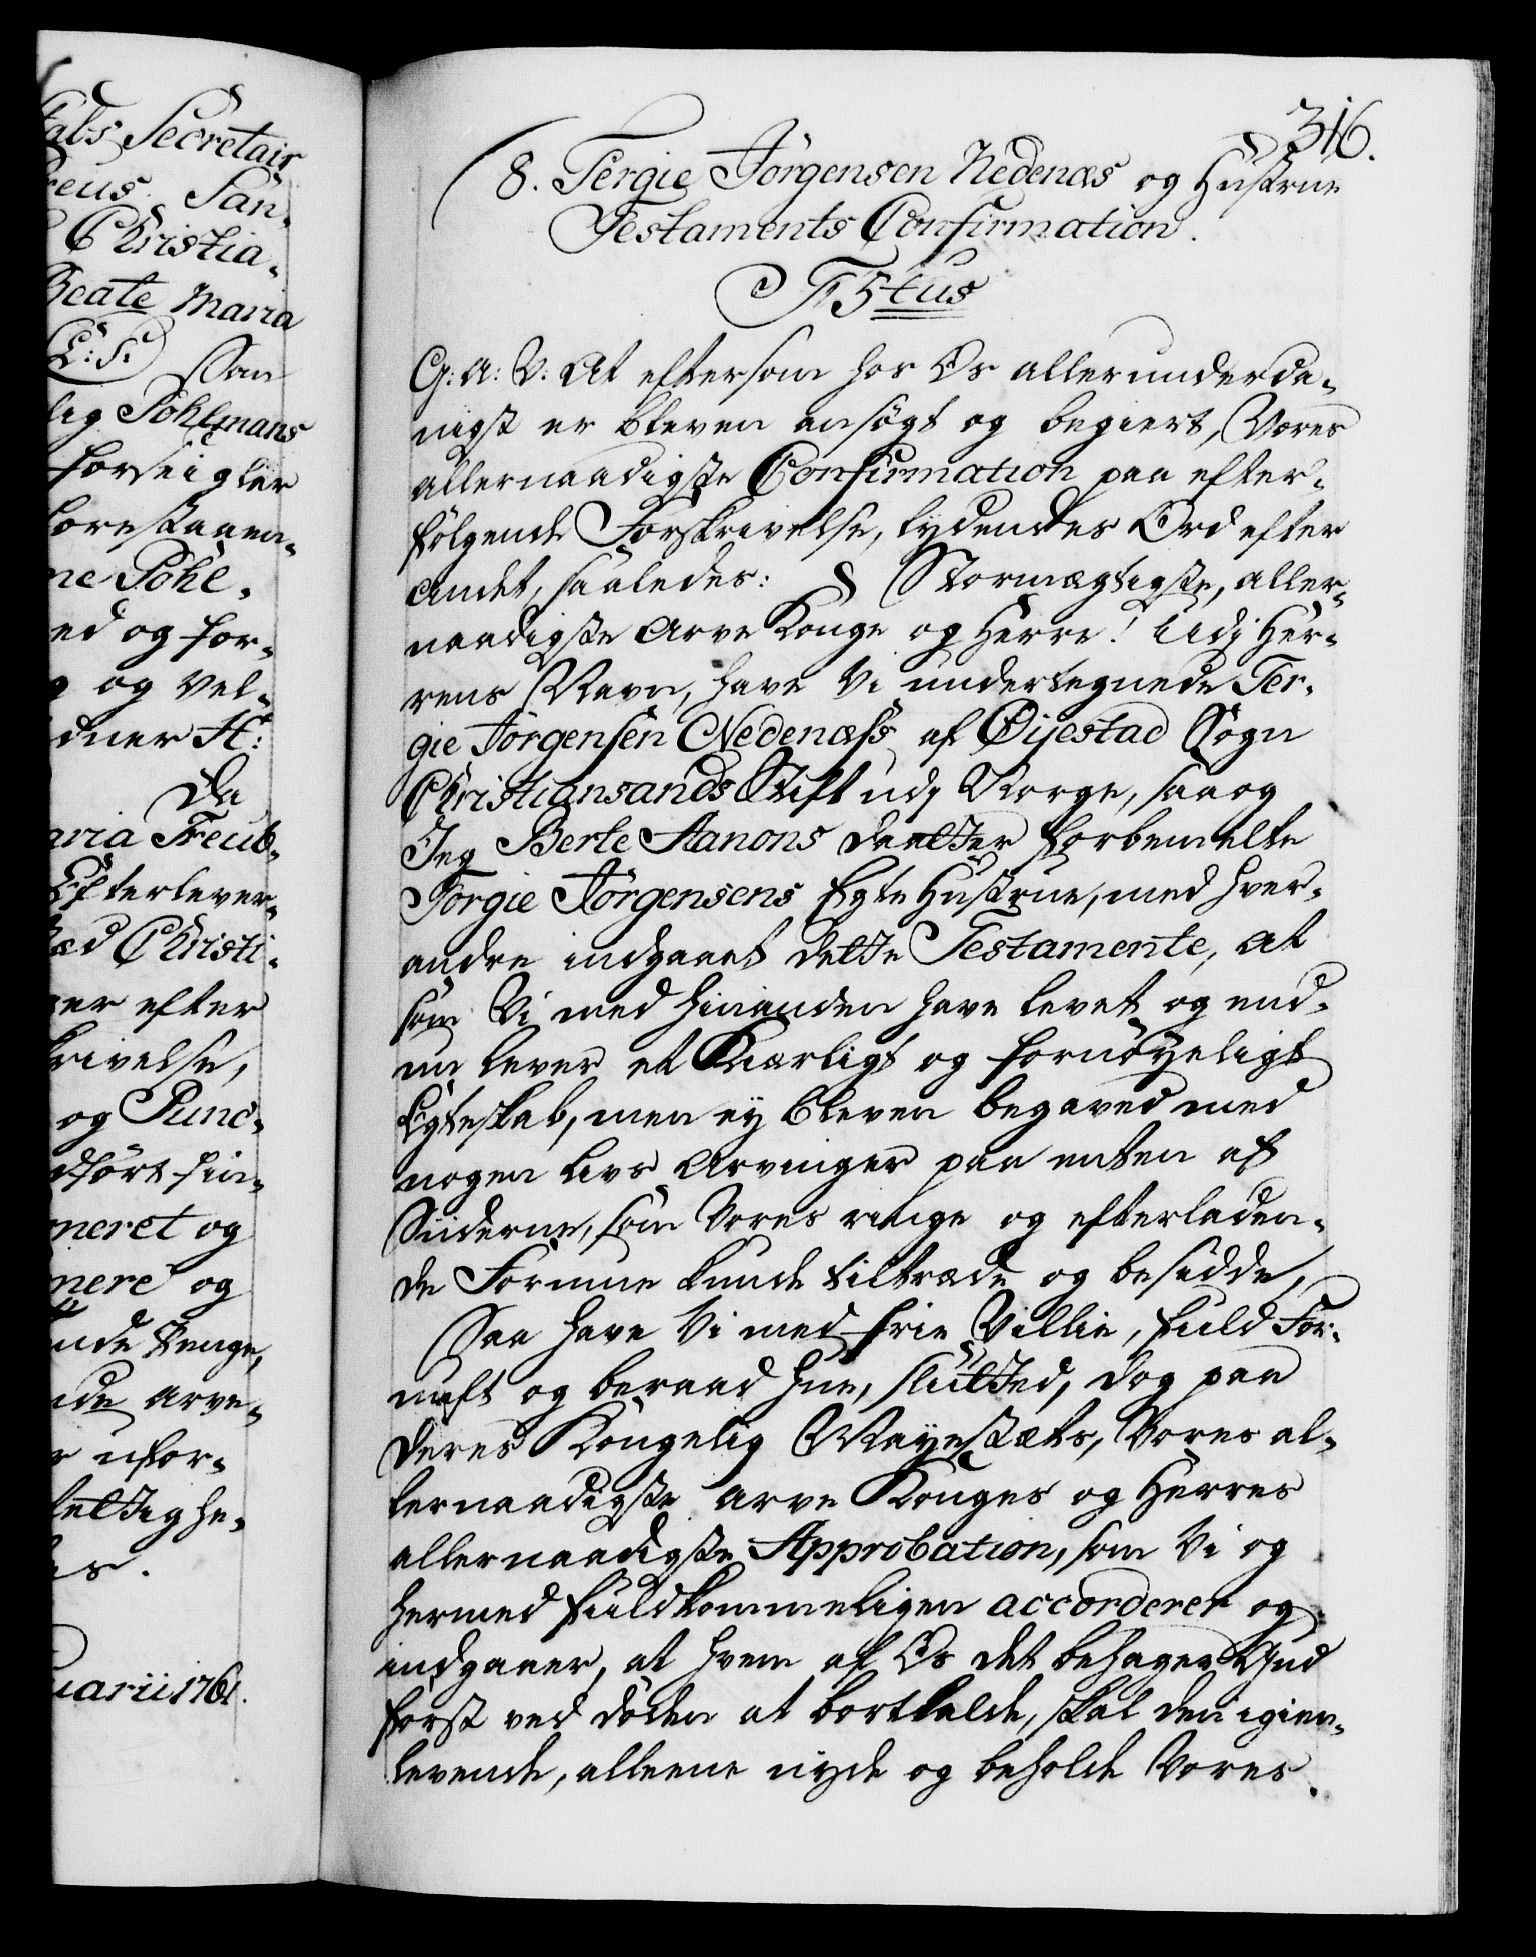 tals Secretair
Preus. San-
Christia-
Beate Maria
L:S: Som
lig Pohlmans
forseigler
forestaaen-
ne Pohl-
ed og for-
og vel-
dner H:
Da
aria Treub-
Efterlever-
Christi-
er efter
krivelse,
og Punc-
dført fin-
neret og
nere og
nde Penge,
nde Arve-
r ufor-
lettighe-
es.
uarii 1761.
316.
8. Tergie Jörgensen Nedenæs og Hustrue
Testaments Confirmation.
F 5tus
G: A: V: At eftersom hos Os allerunderda-
nigst er bleven ansögt og begiert, Vores
allernaadigste Confirmation paa efter-
fölgende Forskrivelse, lydendes Ord efter
andet, saaledes: Stormægtigste, aller-
naadigste Arve Konge og Herre! Udj Her-
rens Navn, have Vi undertegnede Ter-
gie Jörgensen Nedenæss af Öijestad Sogn
Christiansands Stift udj Norge, saa og
Jeg Berte Aanons Daatter forbemelte
Torgie Jörgensens Egte Hustrue, med hver-
andre indgaaet dette Testamente, at
som Vi med hinanden have levet og end-
nu lever et Kiærligt og fornöyeligt
Egteskab, men ey bleven begaved med
nogen Livs Arvinger paa enten af
Siiderne, som Vores ringe og efterladen-
de Formue kunde tiltræde og besidde,
Saa have Vi med frie Villie, fuld For-
nuft og beraad Hue, slutted, dog paa
Deres Kongelig Mayestæts, Vores al-
lernaadigste Arve Konges og Herres
allernaadigste Approbation, som Vi og
hermed fuldkommeligen accorderer og
indgaaer, at hvem af Os det behager Gud
forst ved döden at bortkalde, skal den igien-
levende, alleene nyde og beholde Vores